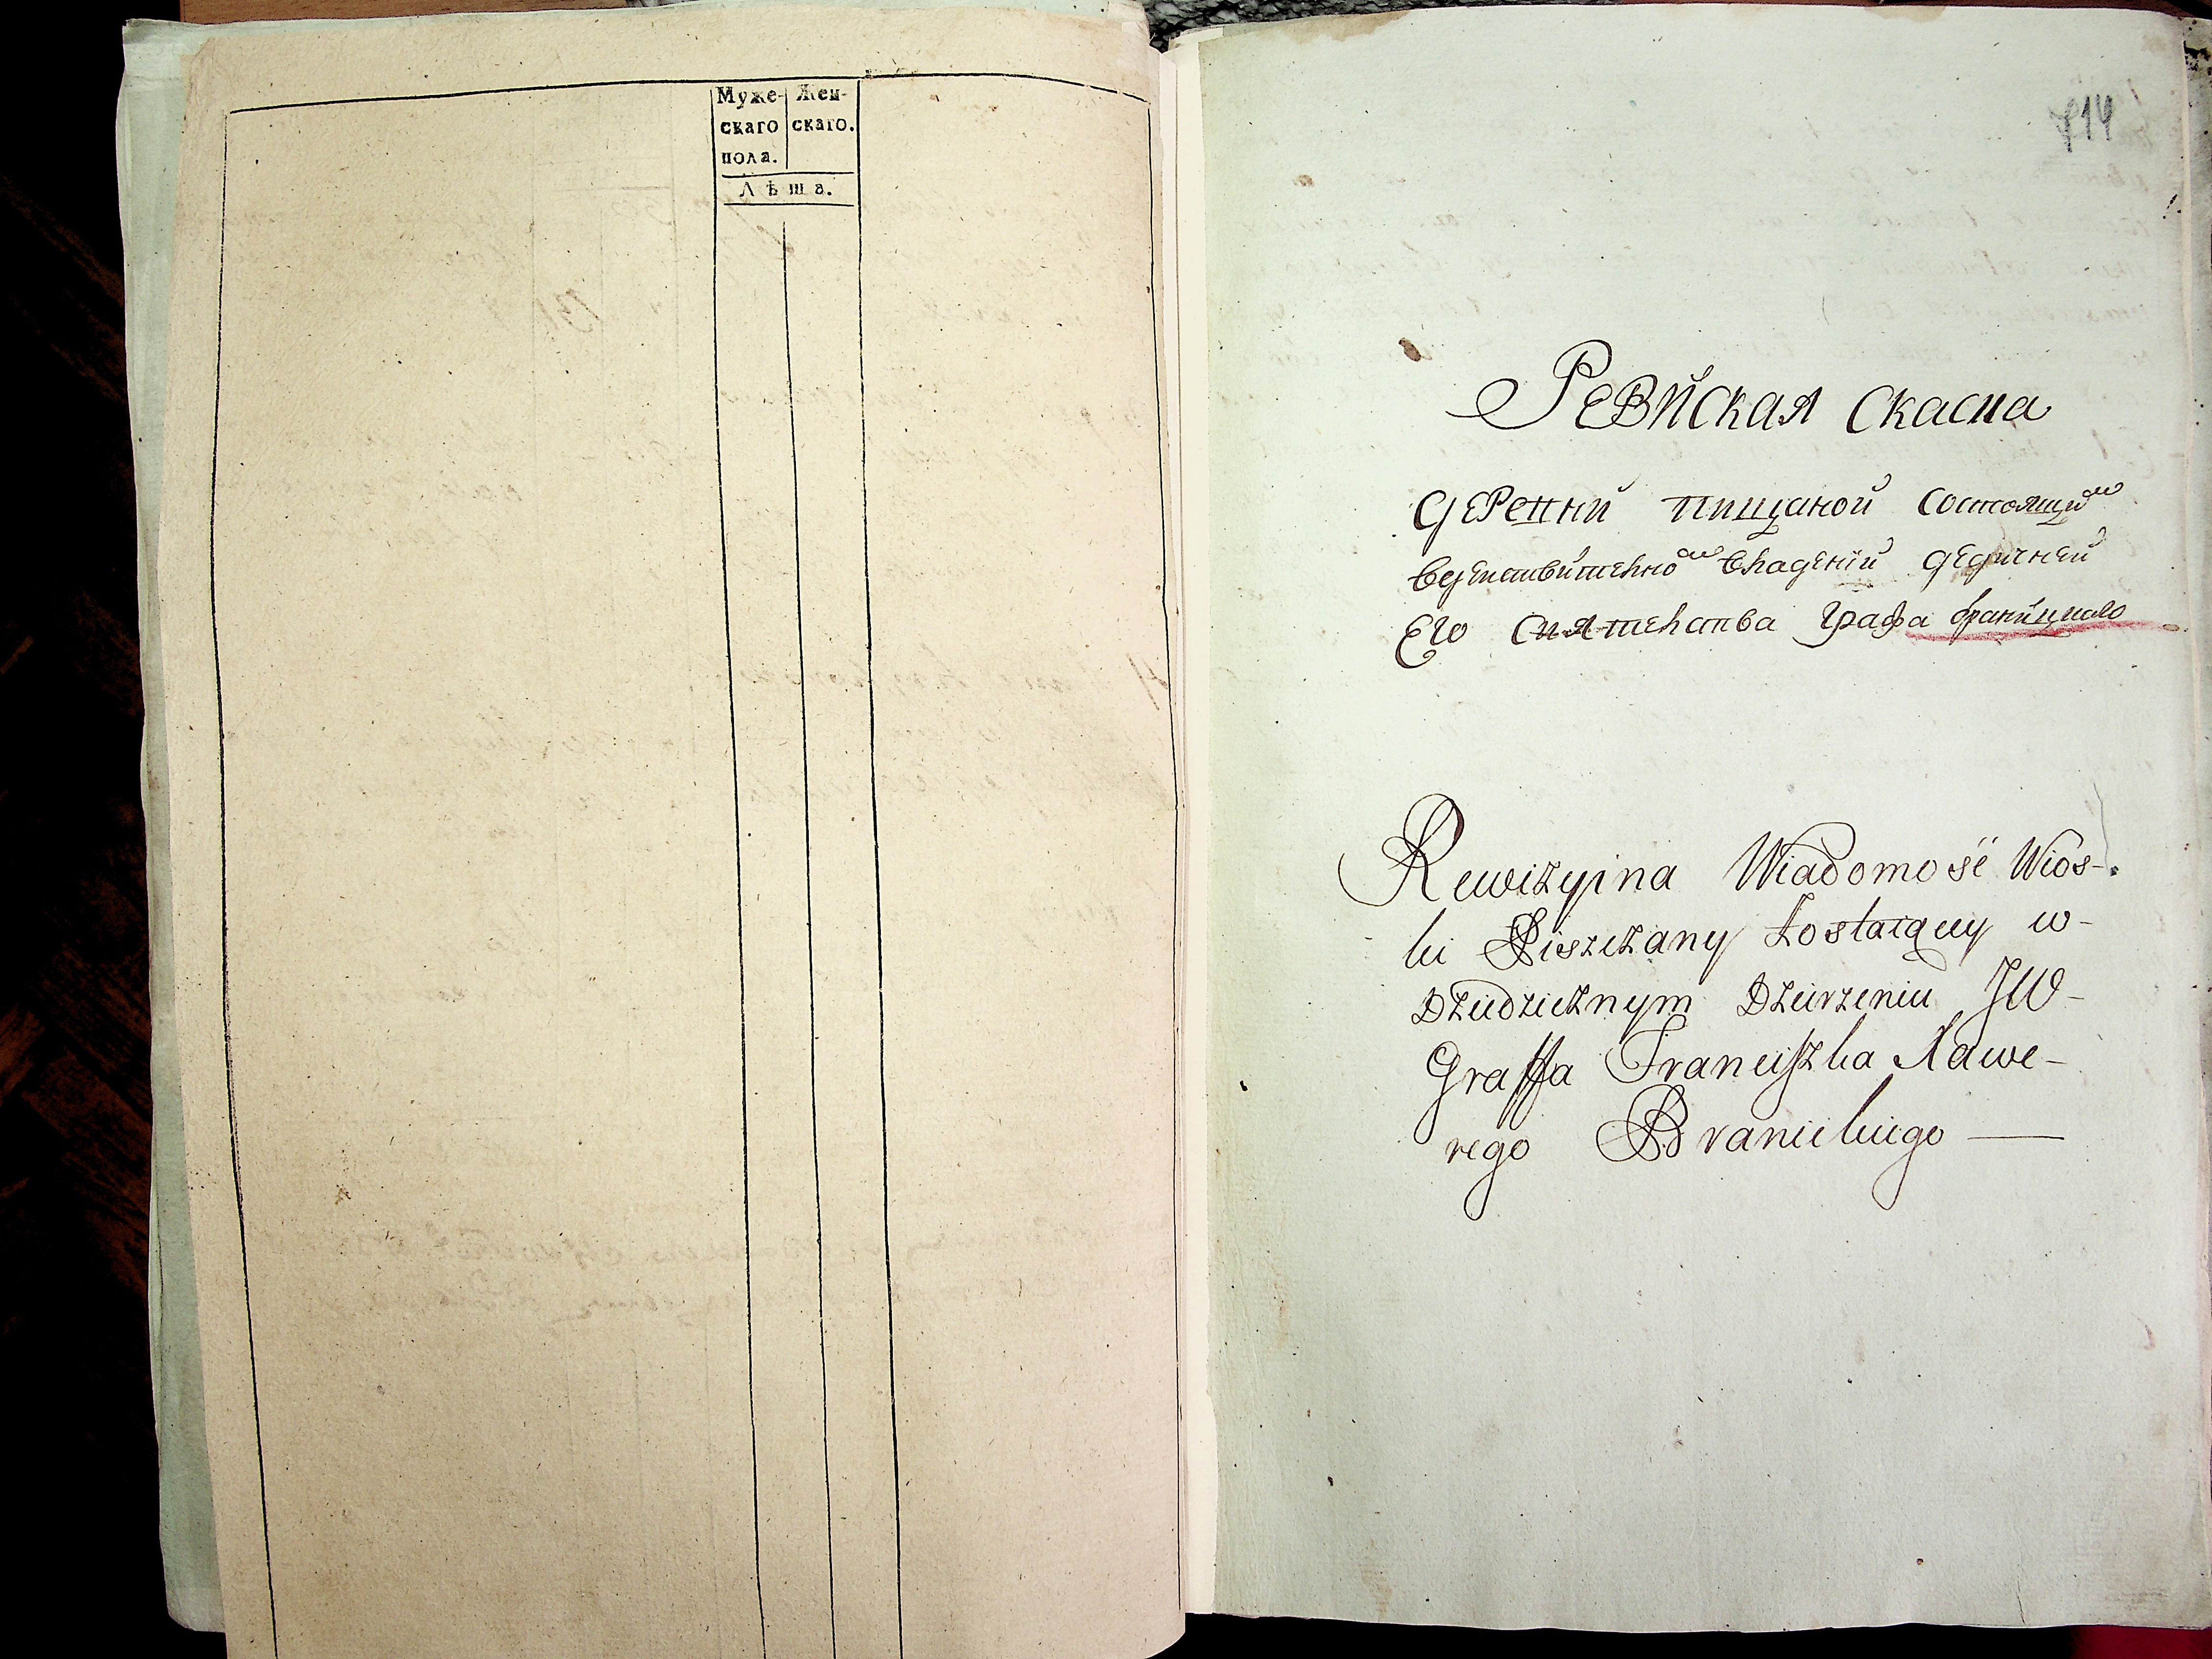 Муже- Жен-
скаго скаго.
пола.
Лѣта.
714
Ревиская Скасна
Деревни пищаной состоящи́м
вдействительном владении дедичней
Его Сиятельства графа браницкаго
Rewizyina Wiadomość Wios-
ki Piszczany Zostaiącey w-
Dziedzicznym Dzierzeniu JW-
Graffa Franciszka Xawe-
rego Branickiego —